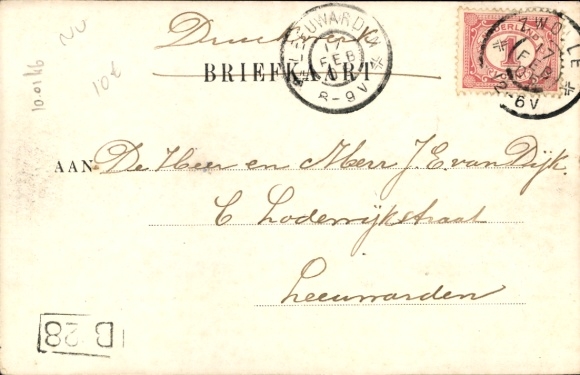 Drukwerk
BRIEFKAART
LEEUWARDEN
17
FEB
8-9V
NEDERLAND
1
ZWOLLE
17
FEB
12-6V
10.01/6
10€
AAN De Heer en Mevr J. E. van Dijk.
Lodewijkstraat
Leeuwarden
B 28